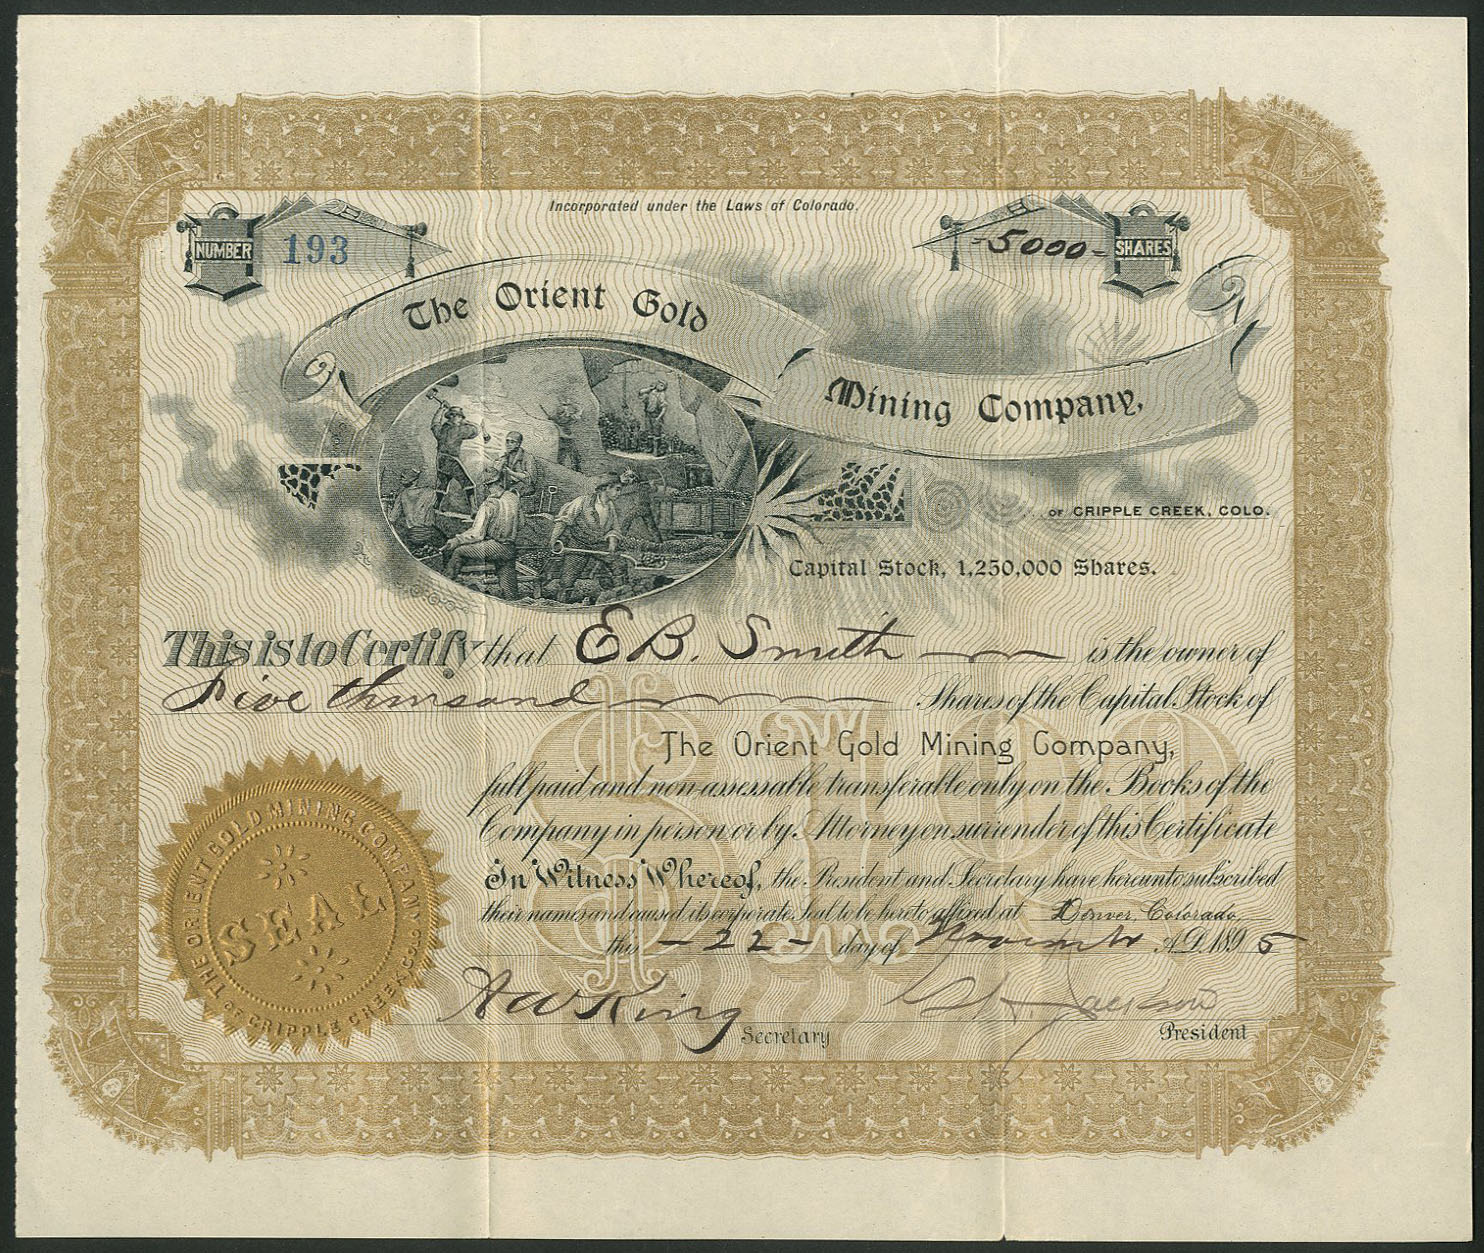 Incorporated under the Laws of Colorado.
NUMBER 193
-5000- SHARES
The Orient Gold
Mining Company,
OF CRIPPLE CREEK, COLO.
Capital Stock, 1,250,000 Shares.
This is to Certify that E B. Smith is the owner of
Five thousand Shares of the Capital Stock of
The Orient Gold Mining Company,
full paid and non-assessable transferable only on the Books of the
Company in person or by Attorney on surrender of this Certificate
In Witness Whereof, the President and Secretary have hereunto subscribed
their names and caused its corporate Seal to be hereto affixed at Denver, Colorado,
this -22- day of November A.D. 1895
$1.00
Each
THE ORIENT GOLD MINING COMPANY
SEAL
OF CRIPPLE CREEK COLO
A W King
Secretary
Jackson
President